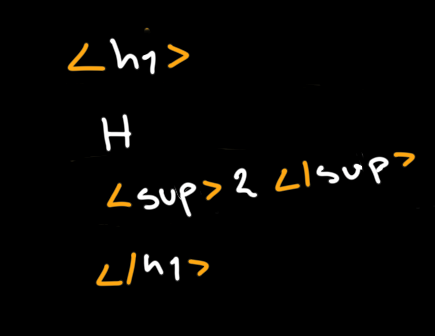 <h1>
H
<sup>2</sup>
</h1>